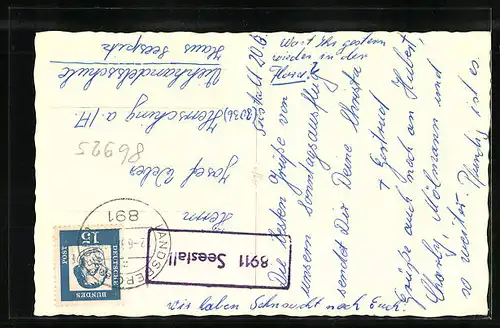 Seestall 20.6.
Die besten Grüße von
unserem Sonntagsausflug
sendet Dir Deine Christa
+ Gertrud
Grüße auch noch an Hubert,
Charly, Mölmann und
so weiter. Pfundig ist es.
Wir haben Sehnsucht nach Euch.
Wart Ihr gestern
wieder in der
8911 Seestall
LANDSBERG
891
DEUTSCHE
BUNDES
POST
15
Herrn
Josef Weber
(8036) Herrsching a/A.
Buchhandelsschule
Haus Seespitz
86925